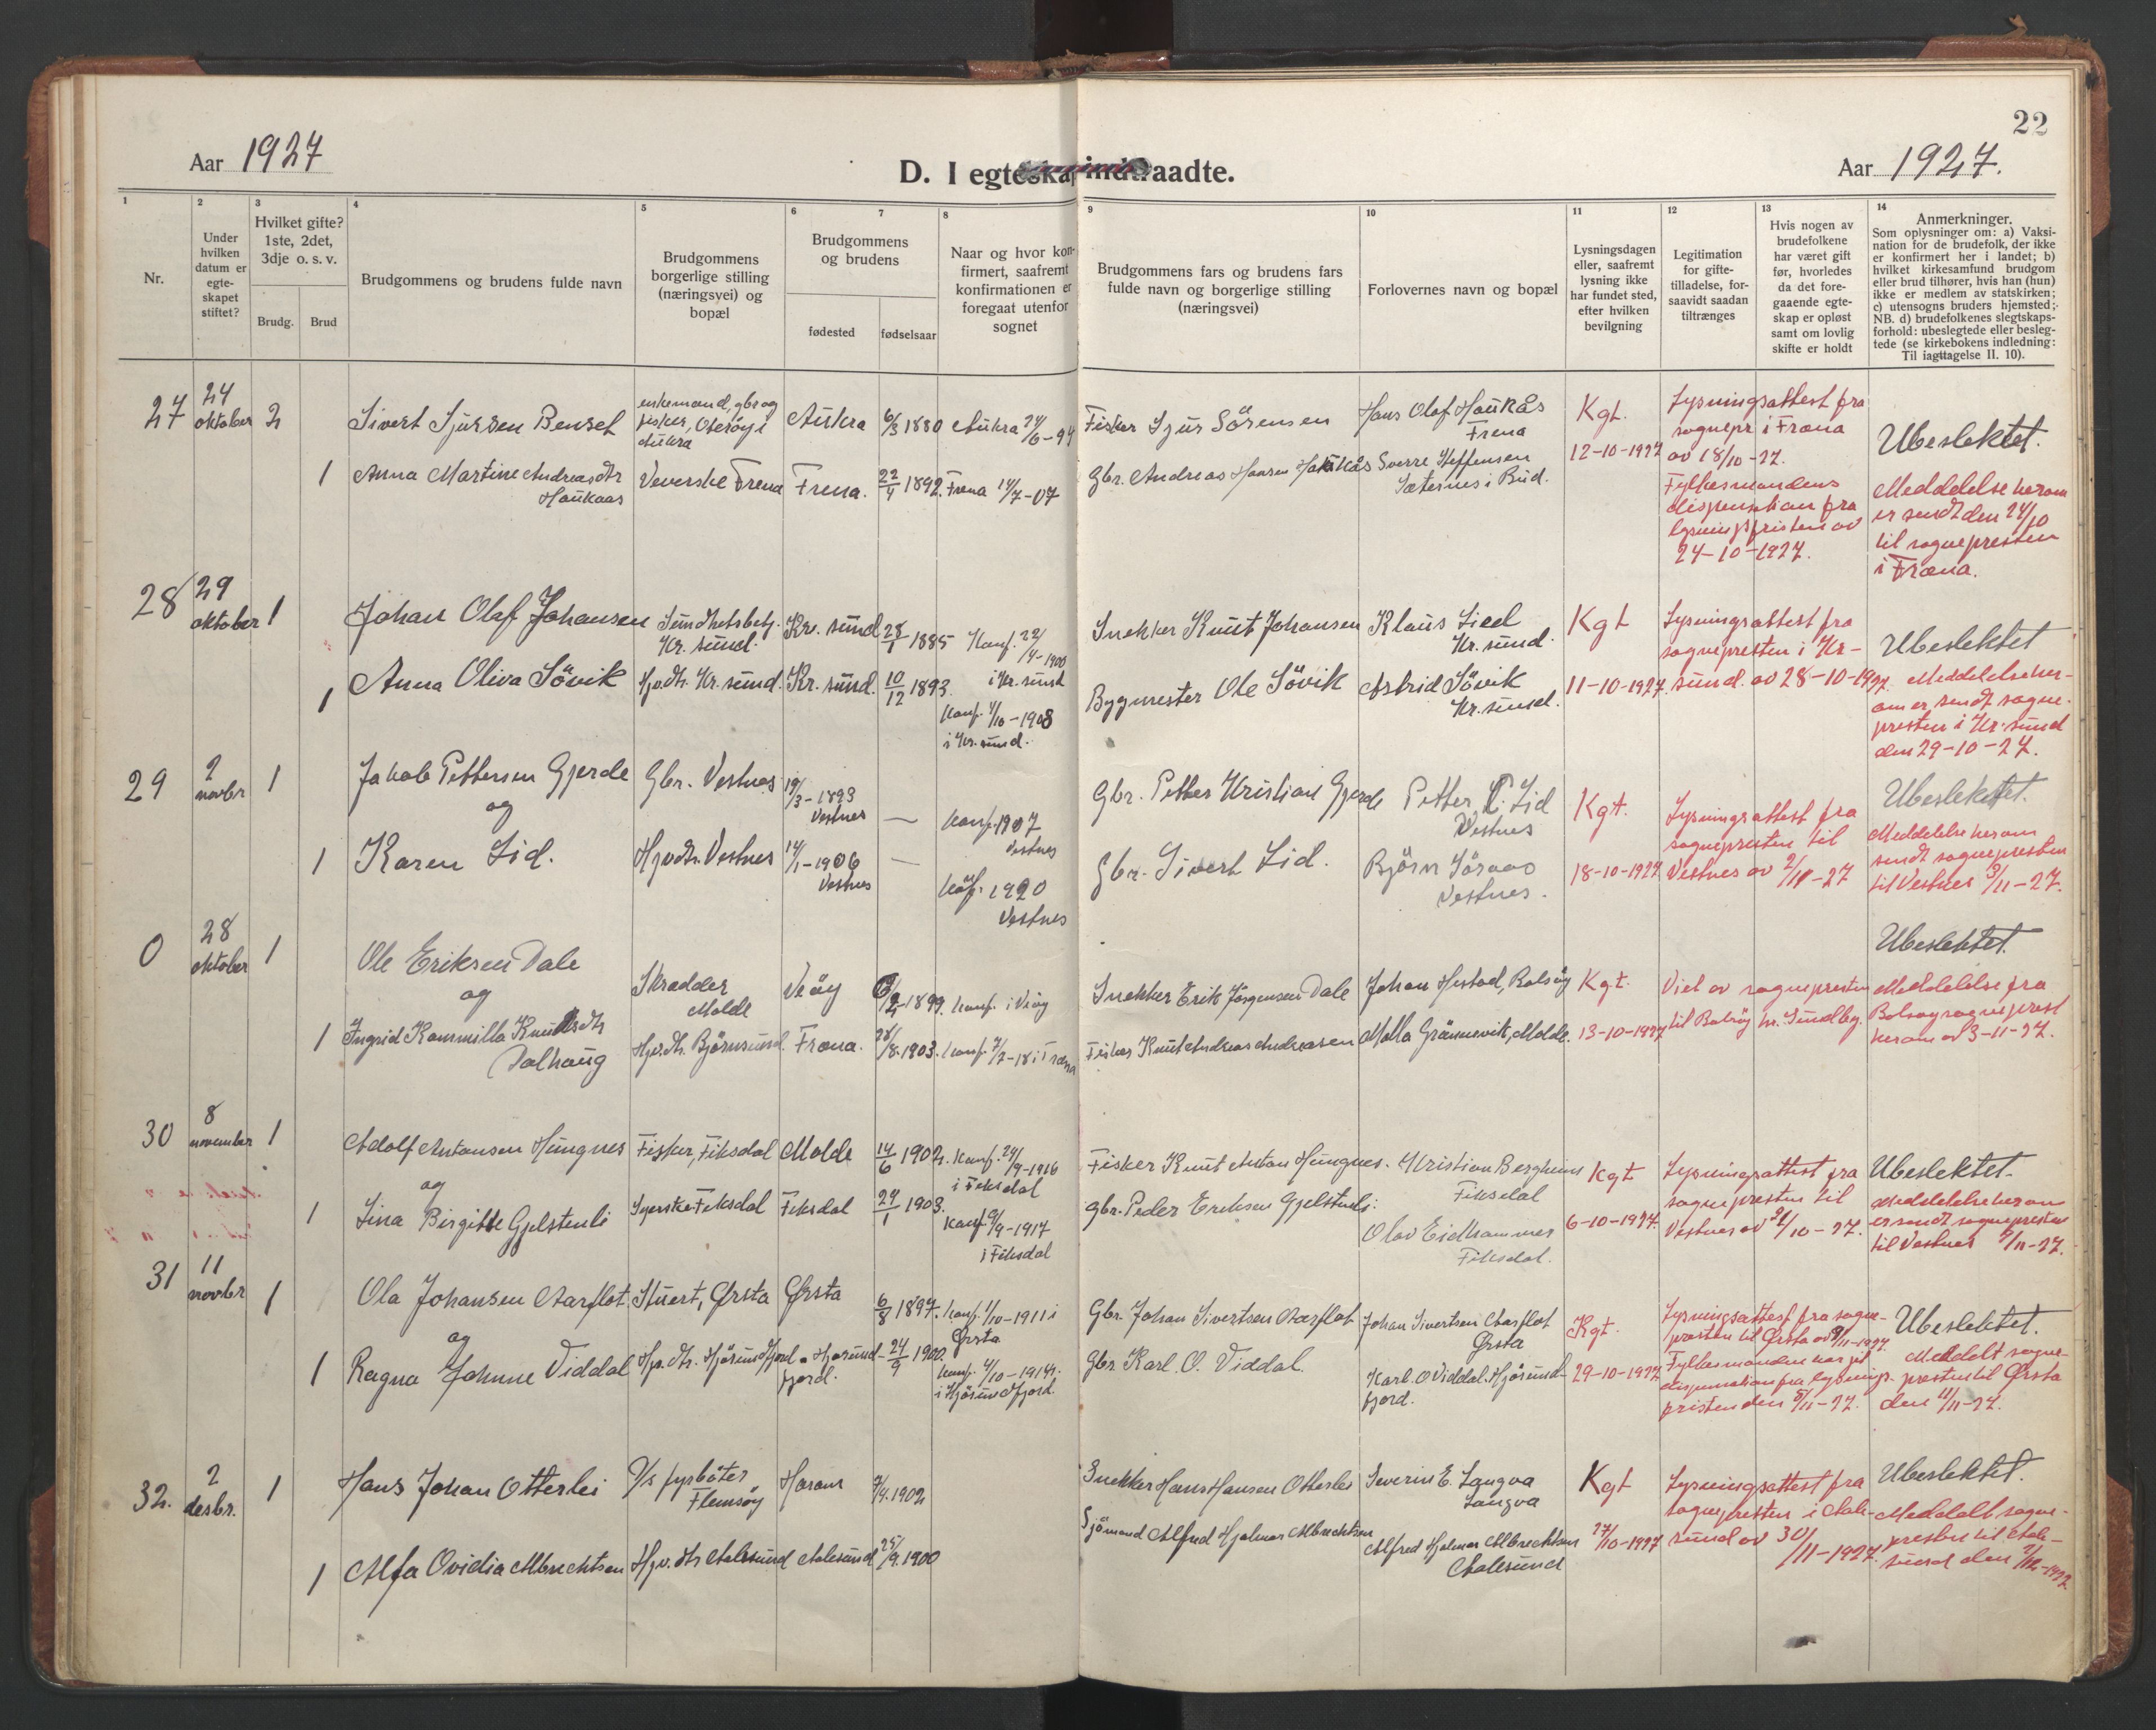 22
Aar 1927
D. I egteskap indtraadte.
Aar 1927.
1
2
3
4
5
6
7
8
9
10
11
12
13
14
Nr.
Under
hvilken
datum er
egte-
skapet
stiftet?
Hvilket gifte?
1ste, 2det,
3dje o. s. v.
Brudg.
Brud
Brudgommens og brudens fulde navn
Brudgommens
borgerlige stilling
(næringsvei) og
bopæl
Brudgommens
og brudens
fødested
fødselsaar
Naar og hvor kon-
firmert, saafremt
konfirmationen er
foregaat utenfor
sognet
Brudgommens fars og brudens fars
fulde navn og borgerlige stilling
(næringsvei)
Forlovernes navn og bopæl
Lysningsdagen
eller, saafremt
lysning ikke
har fundet sted,
efter hvilken
bevilgning
Legitimation
for gifte-
tilladelse, for-
saavidt saadan
tiltrænges
Hvis nogen av
brudefolkene
har været gift
før, hvorledes
da det fore-
gaaende egte-
skap er opløst
samt om lovlig
skifte er holdt
Anmerkninger.
Som oplysninger om: a) Vaksi-
nation for de brudefolk, der ikke
er konfirmert her i landet; b)
hvilket kirkesamfund brudgom
eller brud tilhører, hvis han (hun)
ikke er medlem av statskirken;
c) utensogns bruders hjemsted;
NB. d) brudefolkenes slegtskaps-
forhold: ubeslegtede eller besleg-
tede (se kirkebokens indledning:
Til iagttagelse II. 10).
27
24
oktober
2
Sivert Sjursen Benset
enkemand, gbr og
fisker, Oterøy i
Aukra
Aukra
6/3 1880
Aukra 24/6-94
Fisker Sjur Sörensen
Hans Olaf Haukås
Frena
Kgt.
12-10-1927
Lysningsattest fra
sognepr i Fræna
av 18/10-27.
Fylkesmandens
dispensation fra
lysningsfristen av
24-10-1927.
Ubeslektet.
Meddelelse herom
er sendt den 24/10
til sognepresten
i Fræna.
1
Anna Martine Andreasdtr
Haukaas
Veverske Frena
Frena.
22/4 1892.
Frena 14/7-07
Gbr. Andreas Hansen Haukås
Sverre Steffensen
Sæternes i Bud.
28
29
oktober
1
Johan Olaf Johansen
Sundhetsbetj.
Kr. sund.
Kr. sund
28/1 1885
Konf. 22/4-1900
i Kr. sund
Snekker Knut Johansen
Klaus Lied
Kr. sund.
Kgt
11-10-1927.
Lysningsattest fra
sognepresten i Kr-
sund. av 28-10-1927.
Ubeslektet
Meddelelse her-
om er sendt sogne-
presten i Kr. sund
den 29-10-27.
1
Anna Oliva Sövik
Hjv. dtr. Kr. sund.
Kr. sund.
10/12 1893.
Konf. 4/10-1908
i Kr. sund.
Bygmester Ole Sövik
Astrid Sövik
Kr. sund.
29
2
novbr
1
Jakob Pettersen Gjerde
og
Gbr. Vestnes
19/3-1893
Vestnes
—
Konf. 1907
Vestnes
Gbr. Petter Kristian Gjerde
Petter P. Lid
Vestnes
Kgt.
18-10-1927
Lysningsattest fra
sognepresten til
Vestnes av 2/11-27
Ubeslektet.
Meddelelse herom
sendt sognepresten
til Vestnes 3/11-27.
1
Karen Lid.
Hjv dtr. Vestnes
14/1-1906
Vestnes
—
Konf. 1920
Vestnes
Gbr. Sivert Lid.
Björn
Vestnes.
0
28
oktober
1
Ole Eriksen Dale
og
Skrædder
Molde
Veöy
1899.
Konf. i Veöy
Snekker Erik Jörgensen Dale
Johan Hestad, Bolsöy
Kgt.
13-10-1927
Viet av sognepresten
til Bolsöy hr. Sundby.
Ubeslektet.
Meddelelse fra
Bolsøy sogneprest
herom av 3-11-27.
1
Ingrid Kammilla Knutsdtr
Dalhaug
Hjv. dtr. Björnsund.
Fræna.
28/8. 1903.
Konf. 7/7-18 i Fræna
Fisker Knut Andreas Andreasen
Malla Grännevik, Molde.
30
8
november
1
Adolf Antonsen Hungnes
og
Fisker, Fiksdal
Molde
14/6 1902.
Konf. 24/9-1916
i Fiksdal
Fisker Knut Anton Hungnes.
Kristian Bergheim
Fiksdal
Kgt
6-10-1927.
Lysningsattest fra
sognepresten til
Vestnes av 21/10-27.
Ubeslektet.
Meddelelse herom
er sendt sognepresten
til Vestnes 9/11-27.
1
Lina Birgitte Gjelstenli
Syerske Fiksdal
Fiksdal
29/1 1903.
Konf. 9/9-1917
i Fiksdal
Gbr. Peder Eriksen Gjelstenli.
Olav Eidhammer
Fiksdal.
31
11
novbr
1
Ola Johansen Aarflot
og
Stuert, Ørsta
Ørsta
6/8 1897.
Konf. 1/10-1911 i
Ørsta
Gbr. Johan Sivertsen Aarflot
Johan Sivertsen Aarflot
Ørsta
Kgt.
29-10-1927
Lysningsattest fra sogne-
presten til Ørsta av 9/11-1927.
Fylkesmanden har git
dispensation fra lysnings-
fristen den 5/11-27.
Ubeslektet.
Meddelt sogne-
presten til Ørsta
den 11/11-27.
1
Ragna Johnne Viddal
Hjv. dtr. Hjörundfjord
Hjörund-
fjord.
24/9 1900.
Konf. 4/10-1914.
i Hjörundfjord
Gbr Karl. O. Viddal.
Karl. O Viddal. Hjörund-
fjord.
32.
2
desbr.
1
Hans Johan Otterlei
fyrböter
Flemsöy
Haram
7/4. 1902
Snekker Hans Hansen Otterlei
Severin E. Langva
Langva
Kgt
27/10-1927
Lysningsattest fra
sognepresten i Aale-
sund av 30/11-1927.
Ubeslektet.
Meddelt sogne-
presten til Aale-
sund den 2/12-1927
1
Alfa Ovidia Albrechtsen
Hjv. dtr Aalesund
Aalesund
25/9. 1900
Sjömand Alfred Hjalmar Albrechtsen
Alfred Hjalmar Albrechtsen
Aalesund